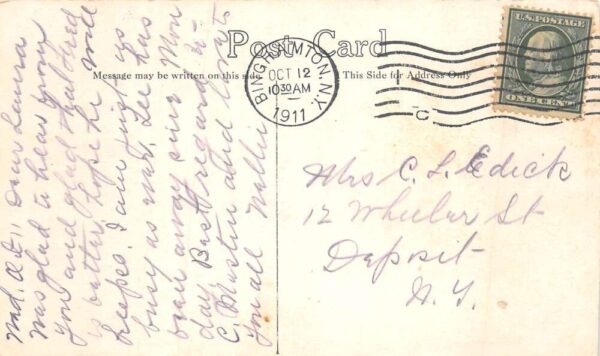 Post Card
Message may be written on this side
This Side for Address Only
BINGHAMTON, N.Y.
OCT 12
10 30 AM
1911
C
U.S. POSTAGE
ONE CENT
Mrs C. L. Edick
12 Wheeler St
Deposit
N.Y.
Wed. Oct 11 Dear
was glad to hear from
you and glad
is better hope he will
I am just as
busy as Lee has
been away since Mon
day. Best regards to
C. and love to
you all Nellie